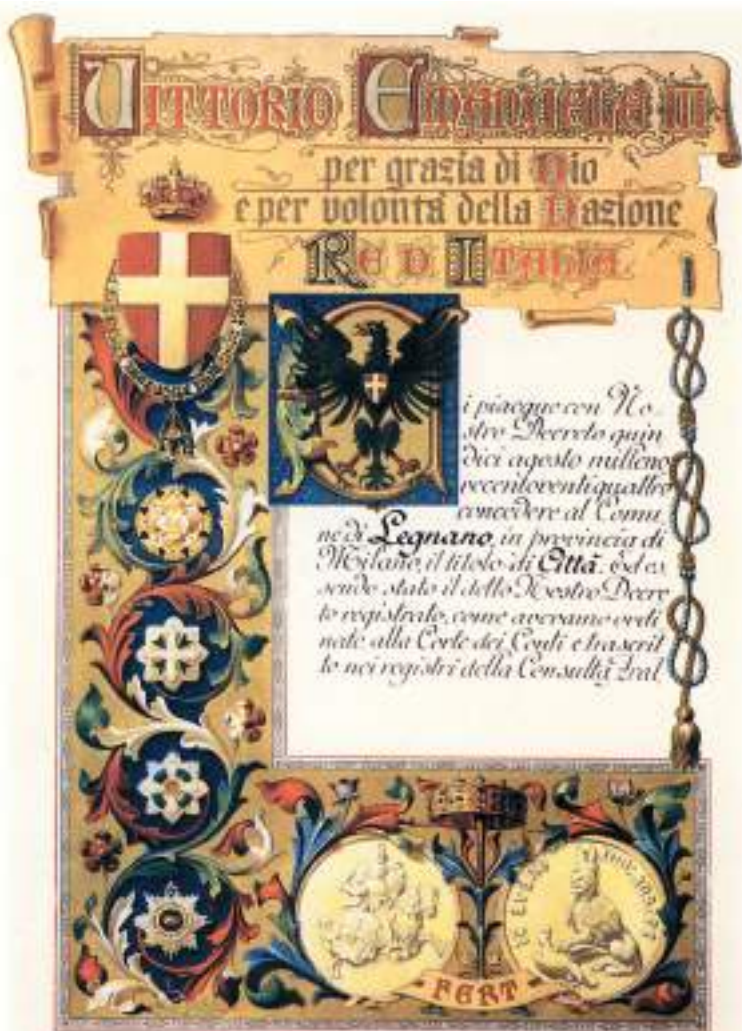 VITTORIO EMANUELE III
per grazia di Dio
e per volontà della Nazione
RE D'ITALIA
i piacque con No
stro Decreto quin
dici agosto milleno
vecentoventiquattro
concedere al Comu
ne di Legnano, in provincia di
Milano, il titolo di Città. Ed es
sendo stato il detto Nostro Decre
to registrato, come avevamo ordi
nato alla Corte dei Conti e trascrit
to nei registri della Consulta Aral
FERT